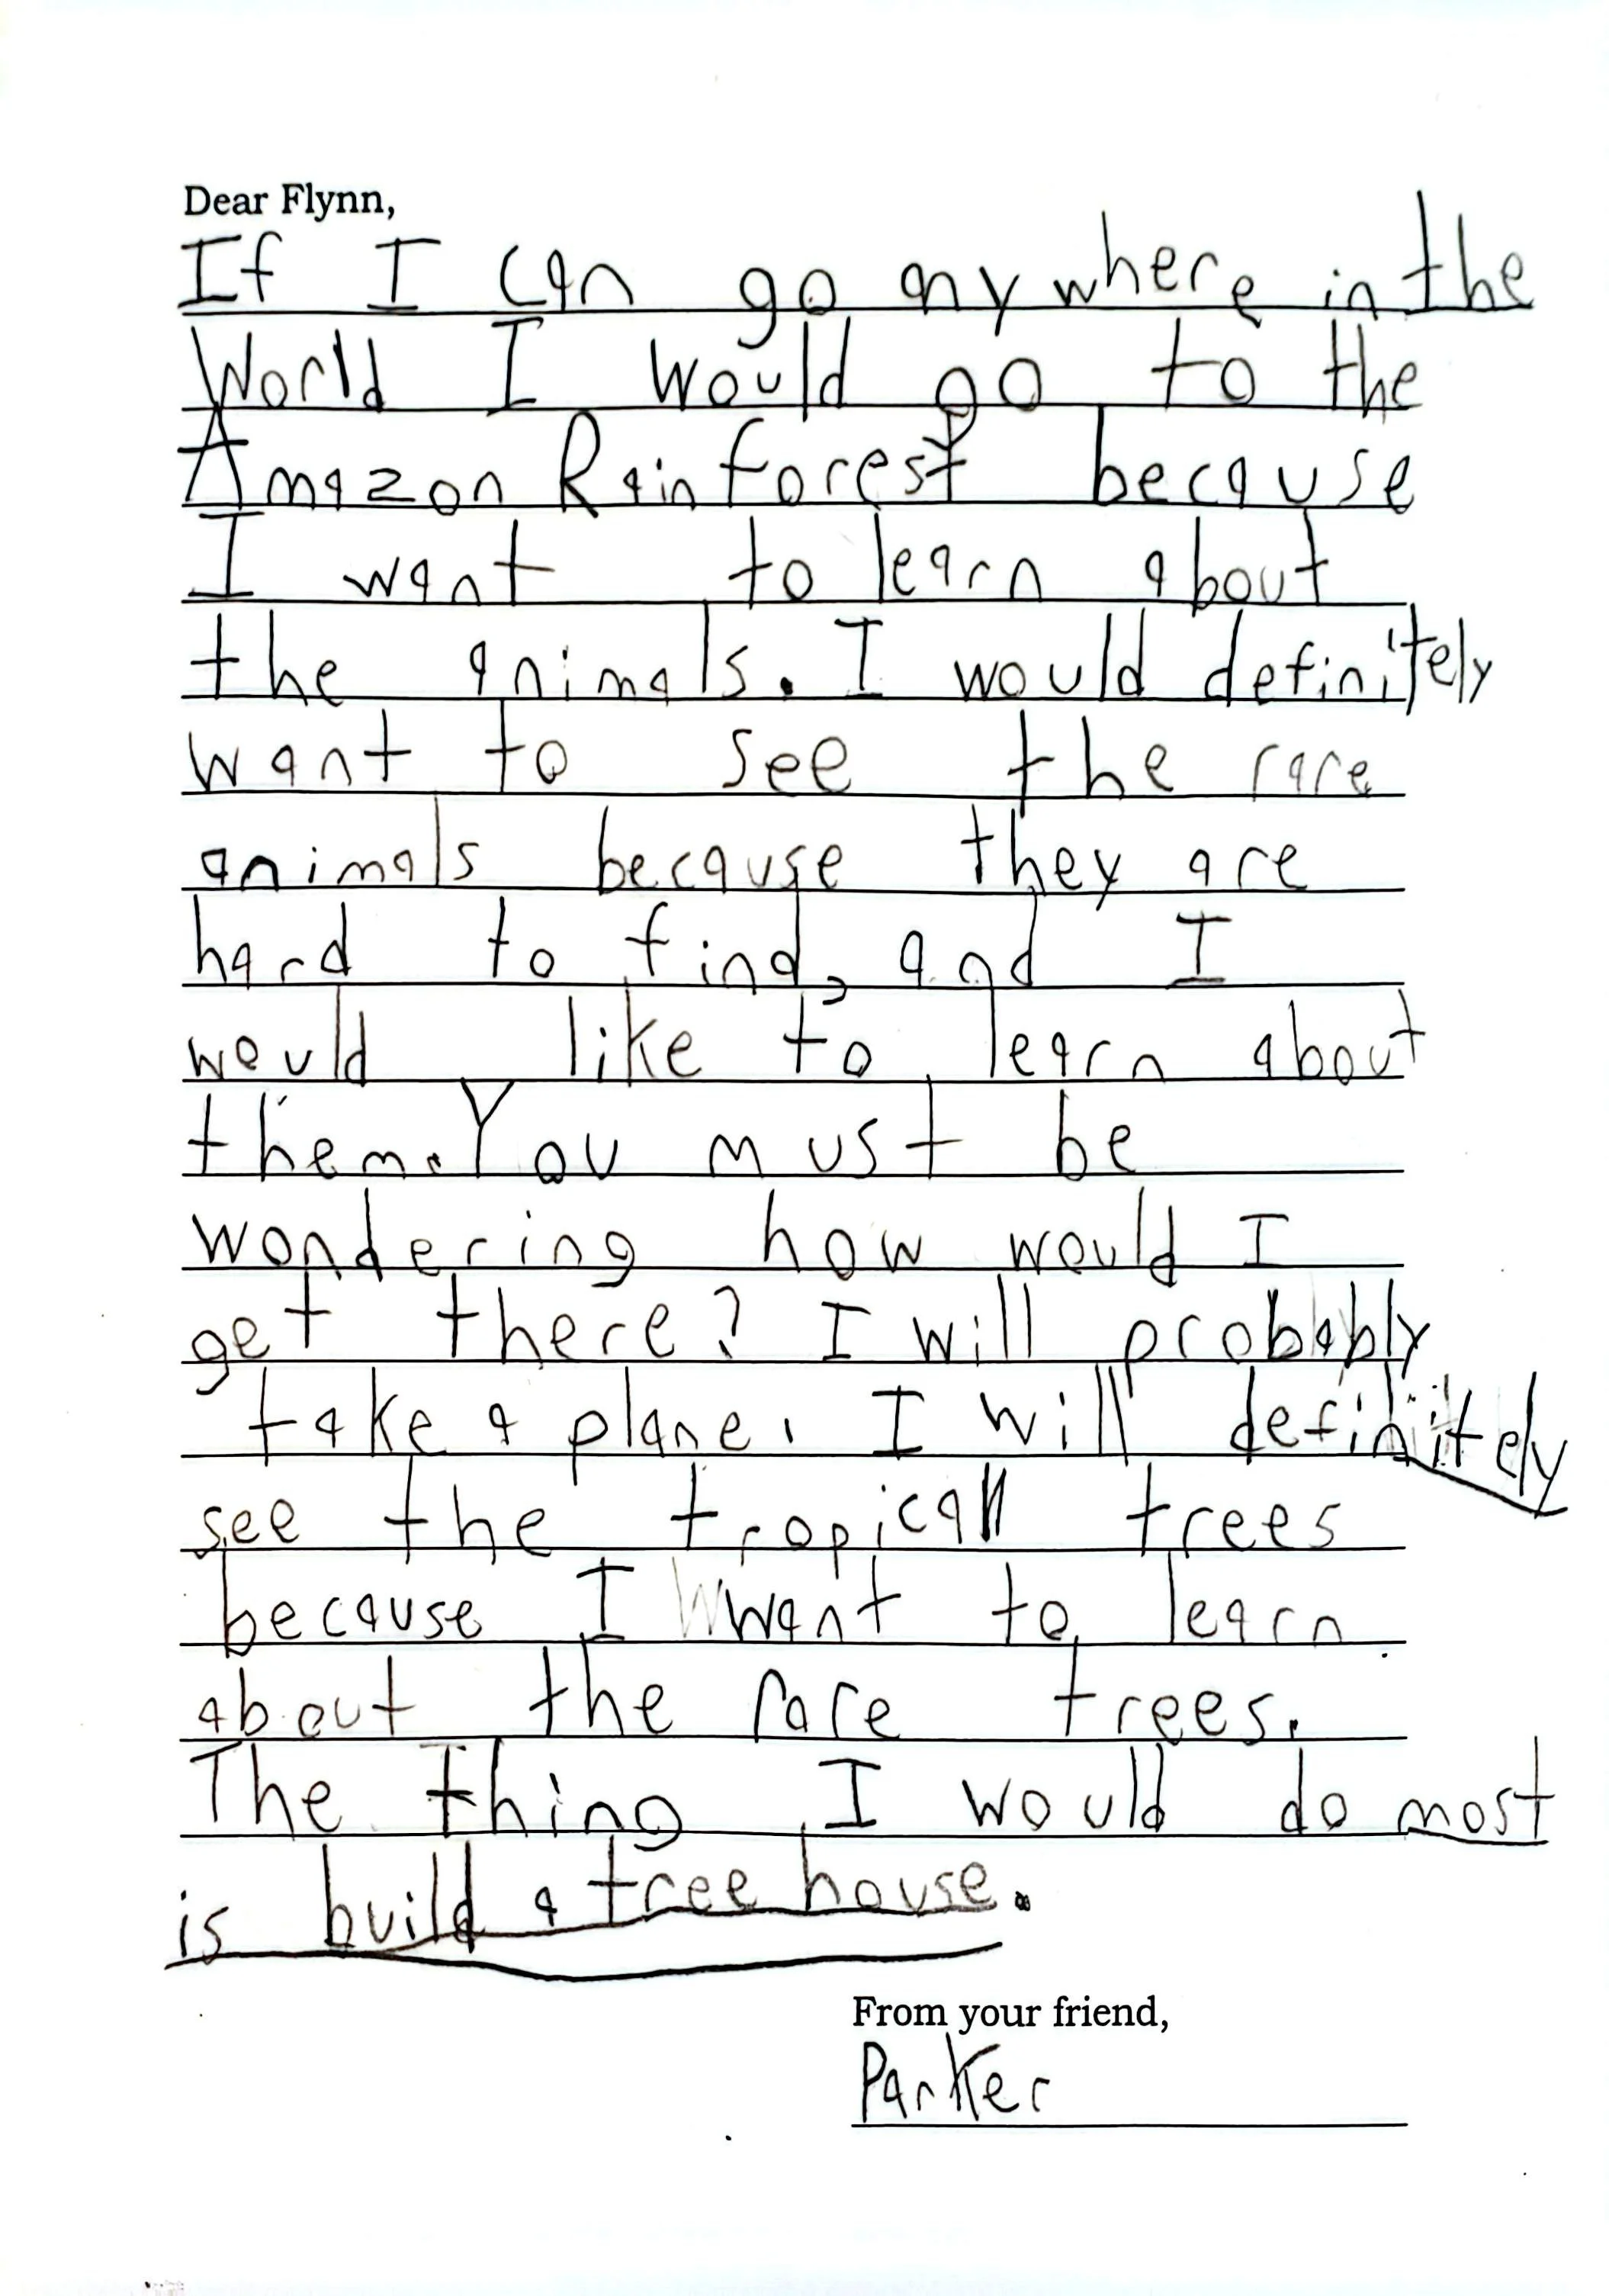 Dear Flynn,
If I can go anywhere in the
World I would go to the
Amazon Rainforest because
I want to learn about
the animals. I would definitely
want to see the rare
animals because they are
hard to find, and I
would like to learn about
them. You must be
wondering how would I
get there? I will probably
take a plane. I will definitely
see the tropical trees
because I want to learn
about the rare trees.
The thing I would do most
is build a tree house.
From your friend,
Parker